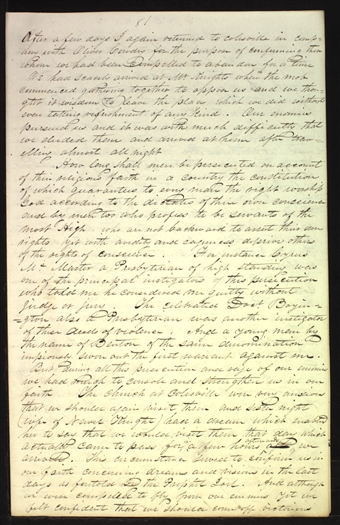 81
After a few days I again returned to colesville in comp-
any with Oliver Cowdry for the purpose of confirming those
whom we had been compelled to abandon for a time
We had scarcely arrived at Mr Knights when the mob
commenced gathering together to oppose us and we thou-
ght it wisdom to leave the place which we did without
even taking refreshment of any kind. Our enemies
pursued us and it was with much difficulty that
we eluded them and arrived at home after trav-
elling almost all night
How long shall men be persecuted on account
of their religious faith in a country the constitution
of which guarantees to every man the right to worship
God according to the dictates of their own conscience
and by men too who profess to be servants of the
most High who are not backward to assert their own
rights yet with avidity and eagerness deprive others
of the rights of conscience. For instance Cyrus
Mc Master a Presbyterian of high standing was
one of the principal instigators of this persecution
who told me he considered me guilty without
judge or jury The celebrated Doct Boyin-
gton also a Presbyterian was another instigator
of these deeds of violence. And a young man by
the name of Benton of the same denomination
swore out the first warrant against me.
But during all this persecution and rage of our enemies
we had enough to console and strengthen us in our
faith The church at Colesville were very anxious
that we should again visit them and sister Knight
(wife of Knight) had a dream which enabled
her to say that we would visit them that day which
actually came to pass for a few hours afterwards
arrived. This circumstance served to confirm us in
our faith concerning dreams and visions in the last
days as foretold by the Prophet Joel. And although
we were compelled to fly from our enemies yet we
felt confident that we should come off victorious